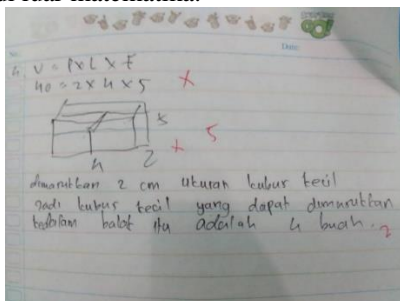 Date:
4. V = P x L x t
40 = 2 x 4 x 5 x
5
4 2 x 5
dimasukkan 2 cm ukuran kubus kecil
Jadi kubus kecil yang dapat dimasukkan
kedalam balok itu adalah 4 buah. 2